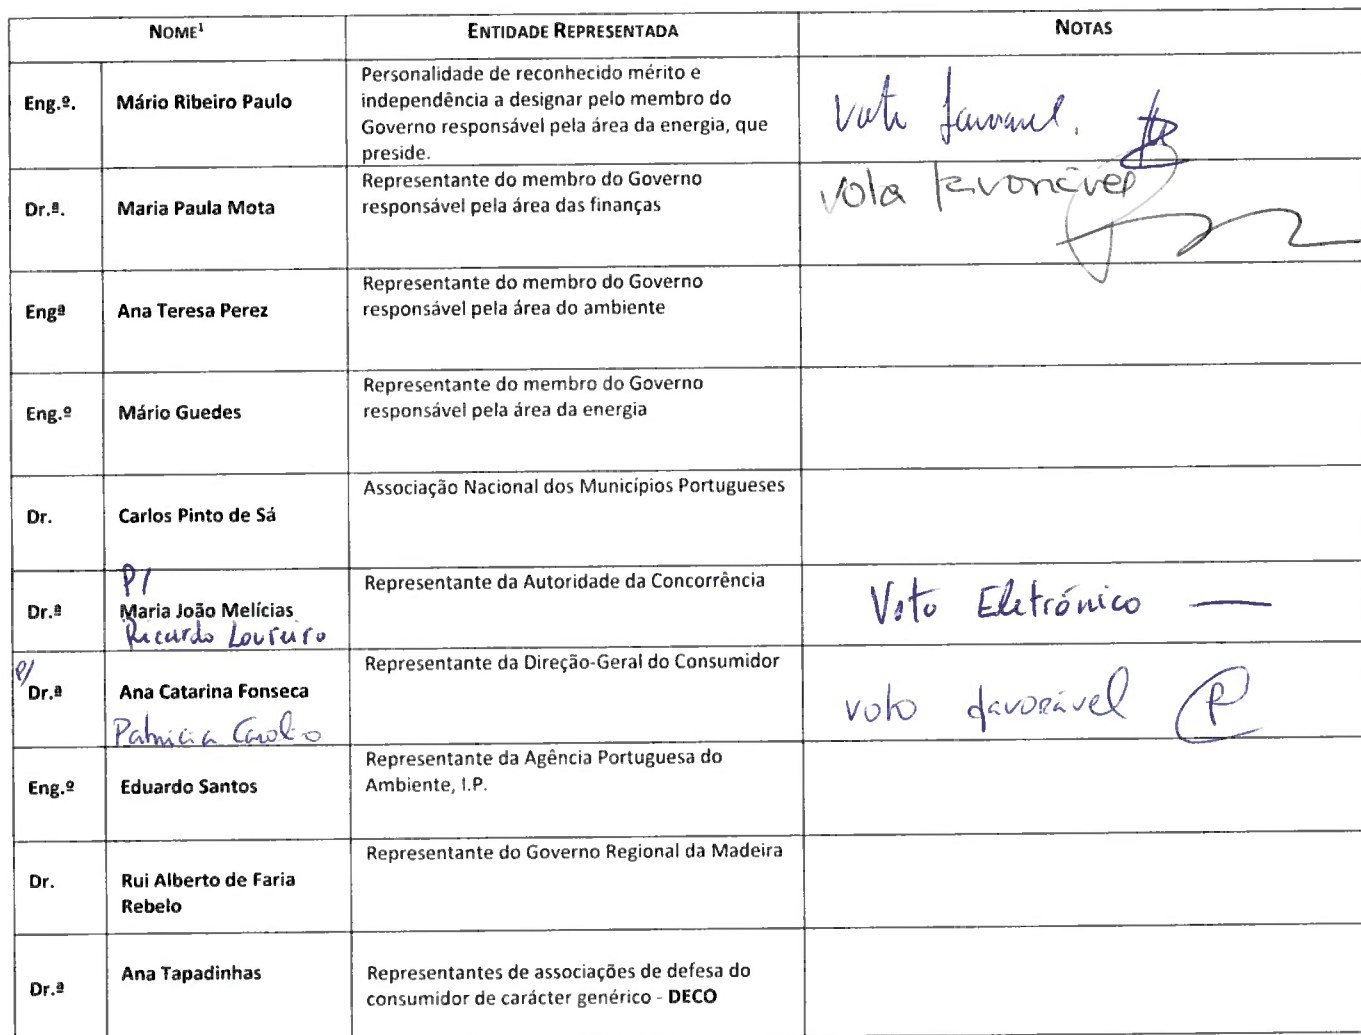 NOME¹ ENTIDADE REPRESENTADA NOTAS
Eng.º. Mário Ribeiro Paulo
Personalidade de reconhecido mérito e
independência a designar pelo membro do
Governo responsável pela área da energia, que
preside.
Voto favorável.
Dr.ª. Maria Paula Mota
Representante do membro do Governo
responsável pela área das finanças
vota favorável
Engª Ana Teresa Perez
Representante do membro do Governo
responsável pela área do ambiente
Eng.º Mário Guedes
Representante do membro do Governo
responsável pela área da energia
Dr. Carlos Pinto de Sá
Associação Nacional dos Municípios Portugueses
P/
Dr.ª Maria João Melícias
Ricardo Loureiro
Representante da Autoridade da Concorrência
Voto Eletrónico —
P/
Dr.ª Ana Catarina Fonseca
Patricia
Representante da Direção-Geral do Consumidor
voto favorável P
Eng.º Eduardo Santos
Representante da Agência Portuguesa do
Ambiente, I.P.
Dr. Rui Alberto de Faria
Rebelo
Representante do Governo Regional da Madeira
Dr.ª Ana Tapadinhas
Representantes de associações de defesa do
consumidor de carácter genérico - DECO